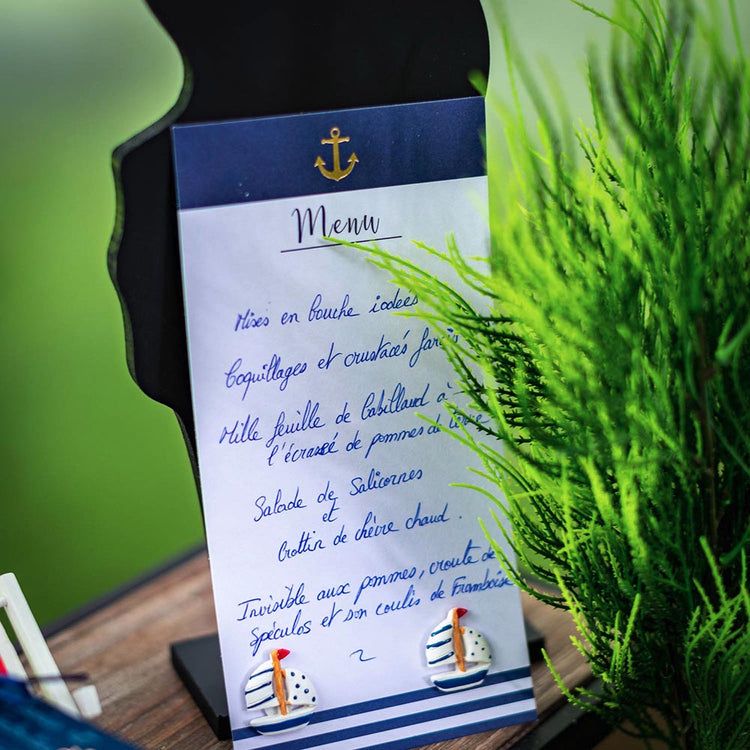 Menu
Mises en bouche iodées
Coquillages et crustacés farcis
Mille feuille de Cabillaud à
l'écrassé de pommes de terre
Salade de Salicornes
et
Crottin de chèvre chaud.
Invisible aux pommes, croute de
Spéculos et son coulis de Framboise